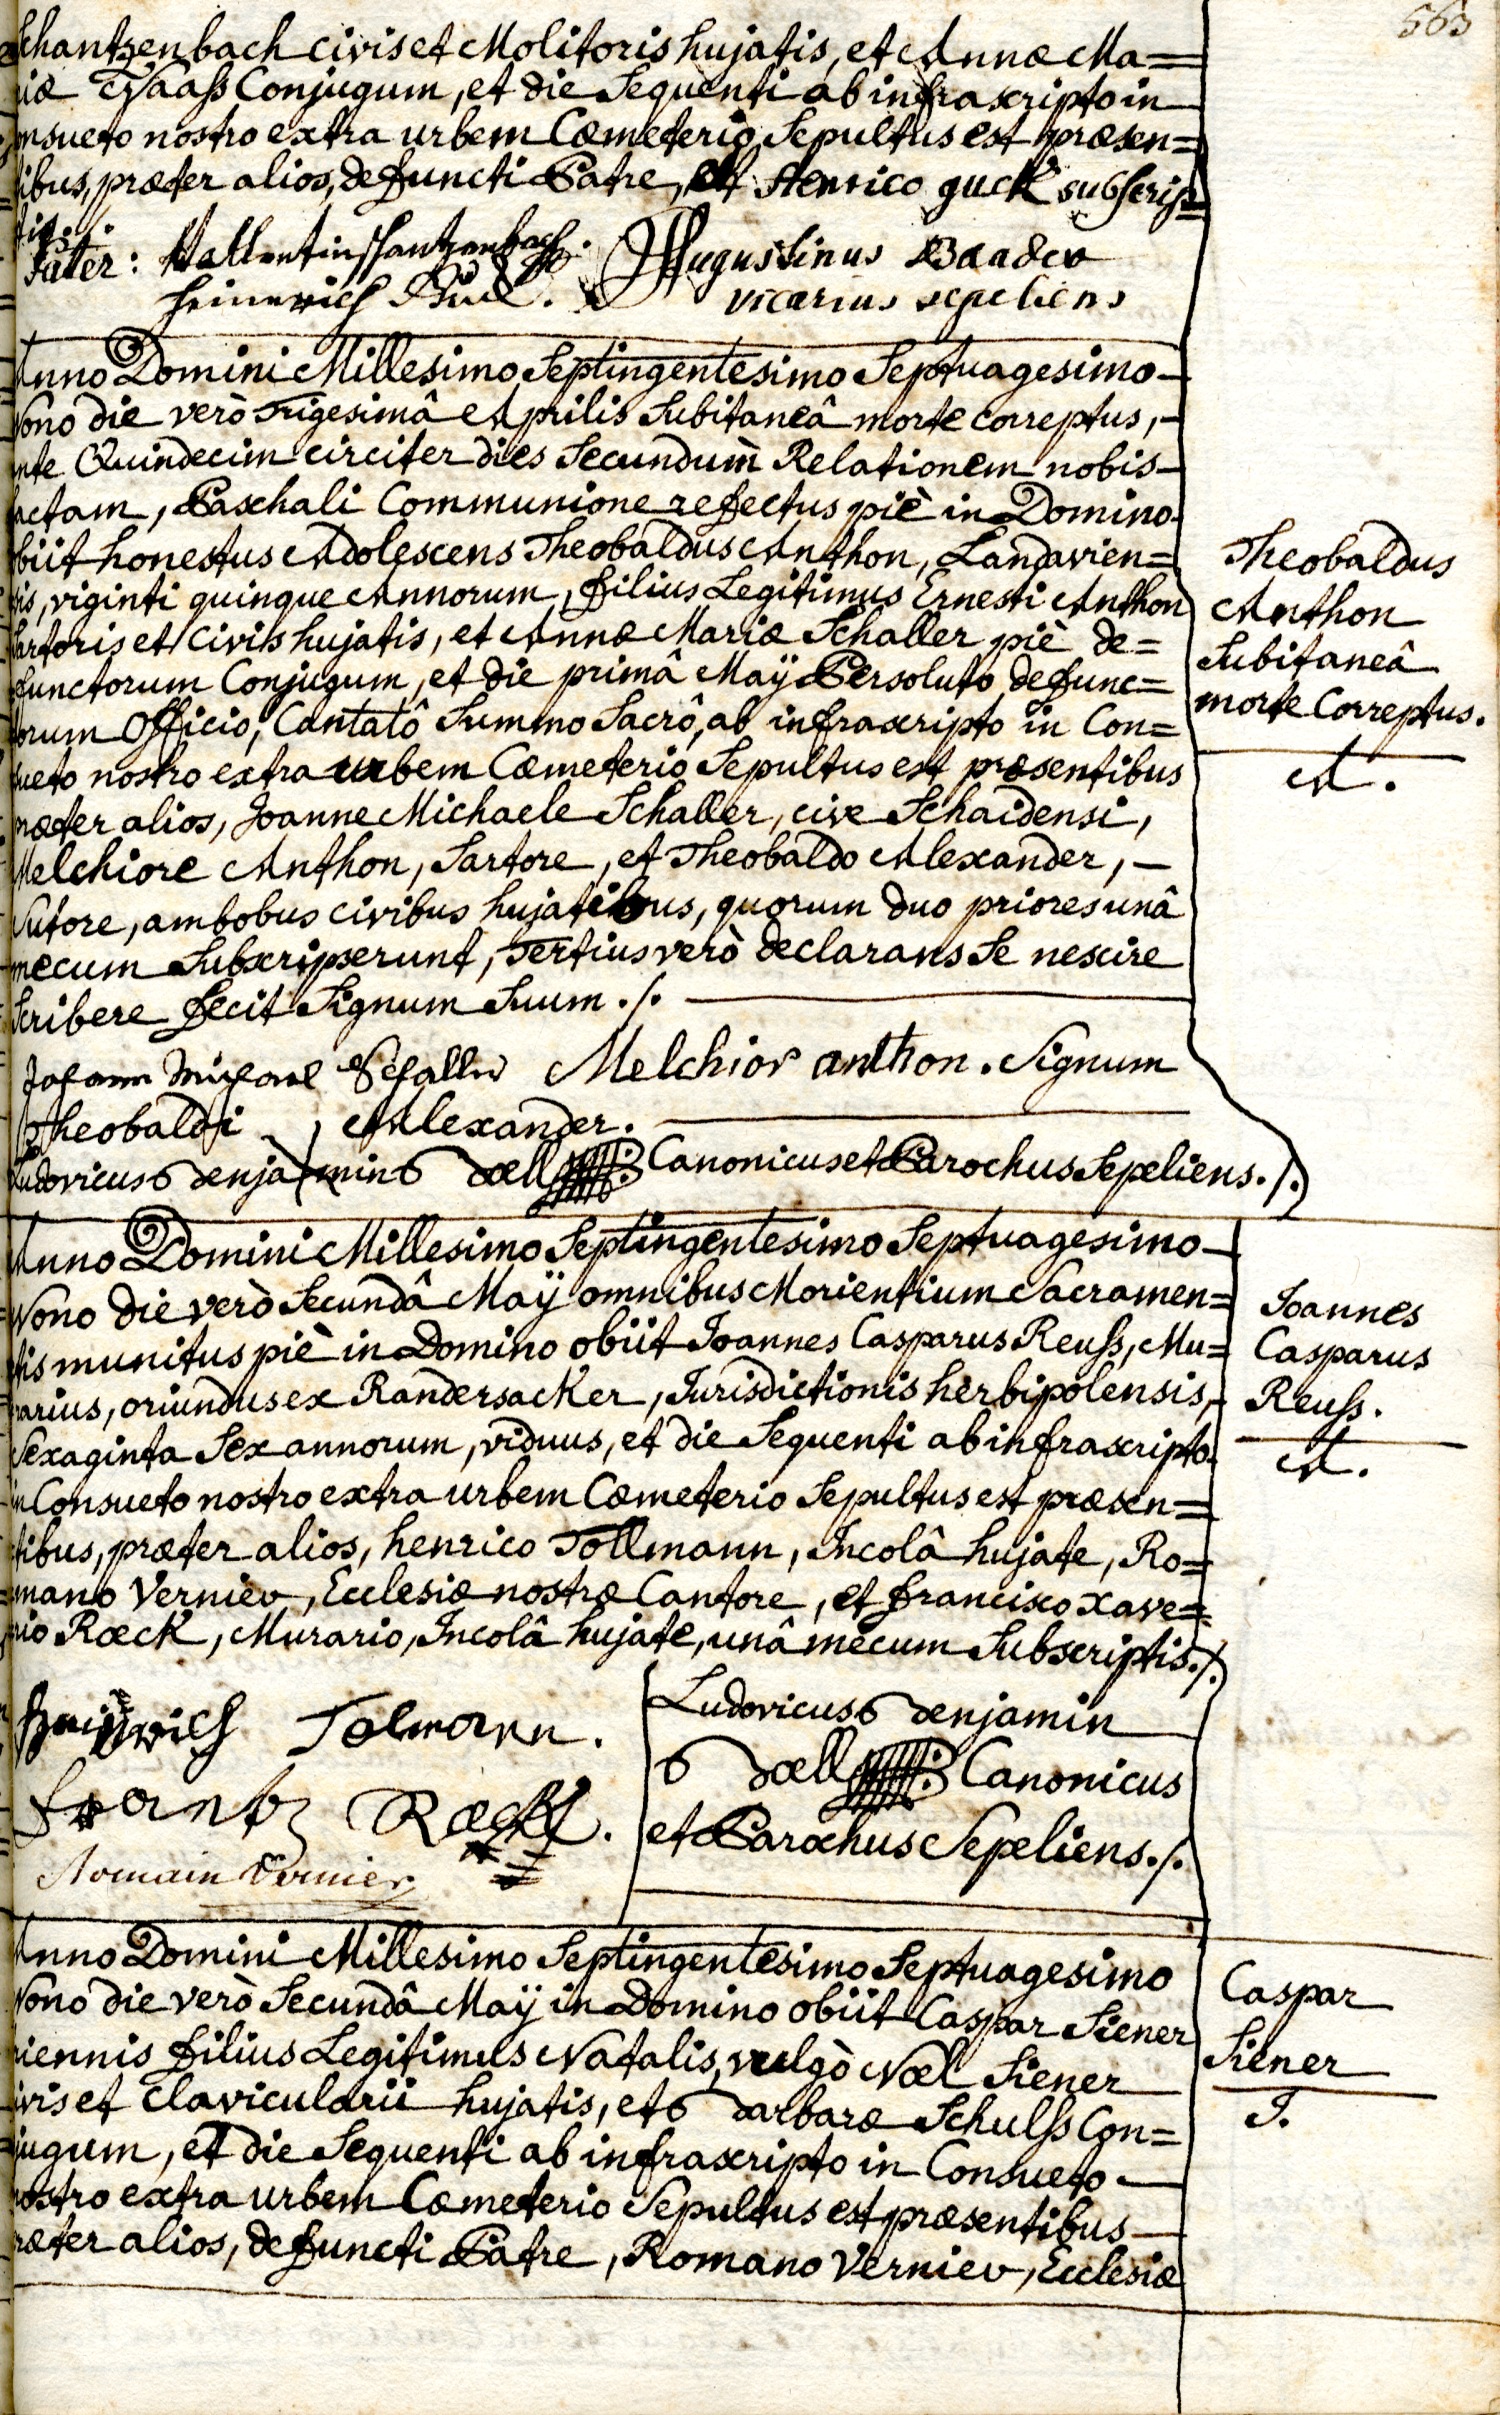 563
Schantzenbach civis et Molitoris hujatis, et Annæ Ma=
riæ Haaß Conjugum, et die Sequenti ab infrascripto in
onsueto nostro extra urbem Cœmeterio Sepultus est præsen=
tibus, præter alios, defuncti Patre, et Henrico guck subscrip=
tis.
Vatter: Vallentin schantzenbach. Augustinus Baader
Heinerich Guck. vicarius sepeliens
Anno Domini Millesimo Septingentesimo Septuagesimo
Nono die verò Trigesimâ Aprilis Subitaneâ morte correptus,
ante Quindecim circiter dies Secundum Relationem nobis
factam, Paschali Communione refectus piè in Domino
obiit honestus Adolescens Theobaldus Anthon, Landavien=
sis, viginti quinque Annorum, filius Legitimus Ernesti Anthon
Sartoris et Civis hujatis, et Annæ Mariæ Schaller piè de=
functorum Conjugum, et die primâ Maÿ Persoluto defunc=
torum Officio, Cantatô Summo Sacrô, ab infrascripto in Con=
sueto nostro extra urbem Cœmeterio Sepultus est præsentibus
præter alios, Joanne Michaele Schaller, cive Schaidensi,
Melchiore Anthon, Sartore, et Theobaldo Alexander,
Sutore, ambobus civibus hujatibus, quorum duo priores unâ
mecum Subscripserunt, Tertius verò declarans Se nescire
Scribere fecit Signum Suum ./.
Theobaldus
Anthon
Subitaneâ
morte Correptus.
A.
Johann Michael Schaller Melchior anthon. Signum
Theobaldi Alexander.
Ludovicus Benjamin Boell Canonicus et Parochus Sepeliens./.
Anno Domini Millesimo Septingentesimo Septuagesimo
Nono die verò Secundâ Maÿ omnibus Morientium Sacramen=
tis munitus piè in Domino obiit Joannes Casparus Reuß, Mu=
rarius, oriundus ex Randersacker, Jurisdictionis herbipolensis,
Sexaginta Sex annorum, viduus, et die Sequenti ab infrascripto
in Consueto nostro extra urbem Cœmeterio Sepultus est præsen=
tibus, præter alios, henrico Tollmann, Incolâ hujate, Ro=
mano Vernier, Ecclesiæ nostræ Cantore, et francisco xave=
rio Rœck, Murario, Incolâ hujate, unâ mecum Subscriptis./.
Joannes
Casparus
Reuß.
A.
Heinrich Tolmann.
frantz Rœck.
Romain Vernier
Ludovicus Benjamin
Boell Canonicus
et Parochus Sepeliens./.
Anno Domini Millesimo Septingentesimo Septuagesimo
Nono die verò Secundâ Maÿ in Domino obiit Caspar Siener
iennis filius Legitimus Natalis, vulgò Noel Siener
Civis et Clavicularii hujatis, et Barbaræ Schulß Con=
jugum, et die Sequenti ab infrascripto in Consueto
nostro extra urbem Cœmeterio Sepultus est præsentibus
præter alios, defuncti Patre, Romano Vernier, Ecclesiæ
Caspar
Siener
J.